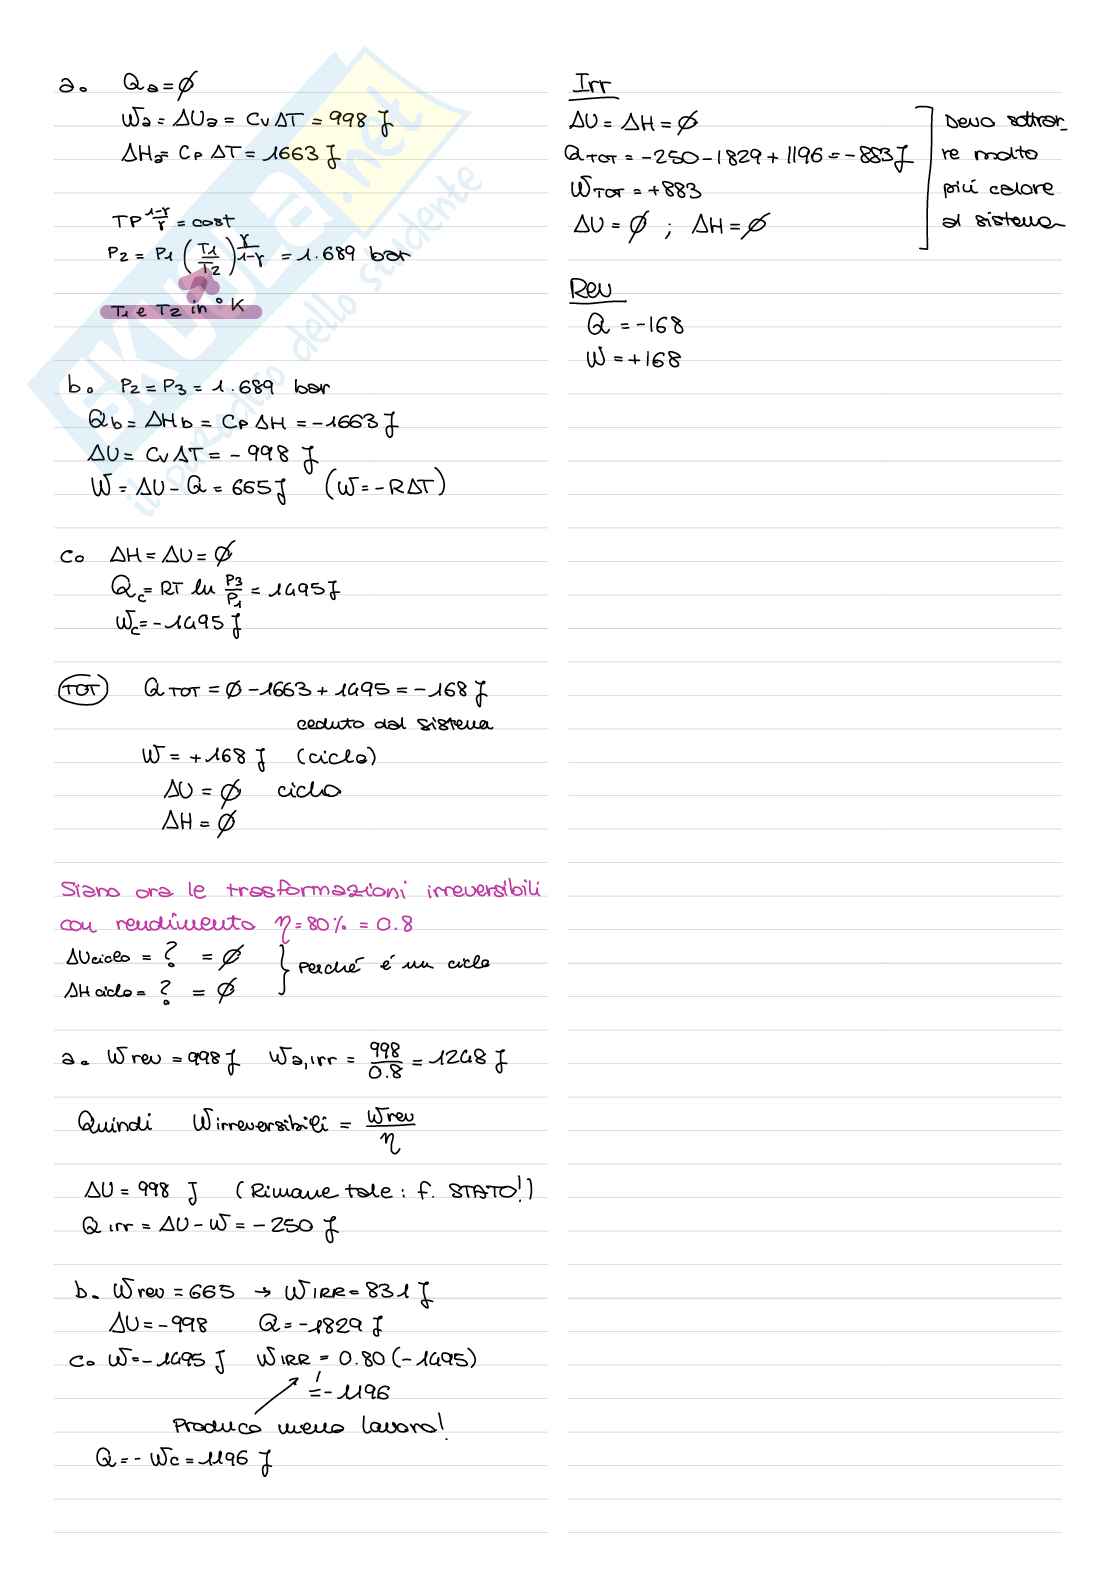 a. Qa = ∅
Wa = ΔUa = Cv ΔT = 998 J
ΔHa = Cp ΔT = 1663 J
TP^(1-γ)/γ = cost
P2 = P1 (T1/T2)^γ/(1-γ) = 1.689 bar
T1 e T2 in °K
b. P2 = P3 = 1.689 bar
Qb = ΔHb = Cp ΔH = -1663 J
ΔU = Cv ΔT = -998 J
W = ΔU - Q = 665 J (W = -RΔT)
c. ΔH = ΔU = ∅
Qc = RT ln P3/P1 = 1495 J
Wc = -1495 J
TOT Q TOT = ∅ -1663 + 1495 = -168 J
ceduto dal sistema
W = +168 J (ciclo)
ΔU = ∅ ciclo
ΔH = ∅
Siano ora le trasformazioni irreversibili
con rendimento η = 80% = 0.8
ΔU ciclo = ? = ∅
ΔH ciclo = ? = ∅
} Perché é un ciclo
a. W rev = 998 J Wa,irr = 998/0.8 = 1248 J
Quindi W irreversibili = Wrev/η
ΔU = 998 J (Rimane tale: f. STATO!)
Q irr = ΔU - W = -250 J
b. Wrev = 665 → W IRR = 831 J
ΔU = -998 Q = -1829 J
c. W = -1495 J W IRR = 0.80 (-1495)
= -1196
Produco meno lavoro!
Q = -Wc = 1196 J
Irr
ΔU = ΔH = ∅
Q TOT = -250 - 1829 + 1196 = -883 J
W TOT = +883
ΔU = ∅ ; ΔH = ∅
Devo sottrar_
re molto
piú calore
al sistema
Rev
Q = -168
W = +168
SKUOLA.net
il paradiso dello studente